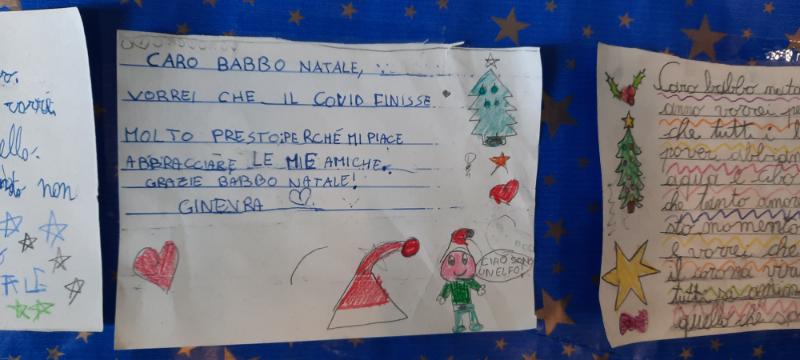 vorrei
non
CARO BABBO NATALE,
VORREI CHE IL COVID FINISSE
MOLTO PRESTO, PERCHÉ MI PIACE
ABBRACCIARE LE MIE AMICHE.
GRAZIE BABBO NATALE!
GINEVRA
CIAO SONO
UN ELFO!
Caro babbo nata
anno vorrei pe
che tutti i b
poveri abbian
che tanto amore
sto momento
e vorrei che
il corona viru
quello che so